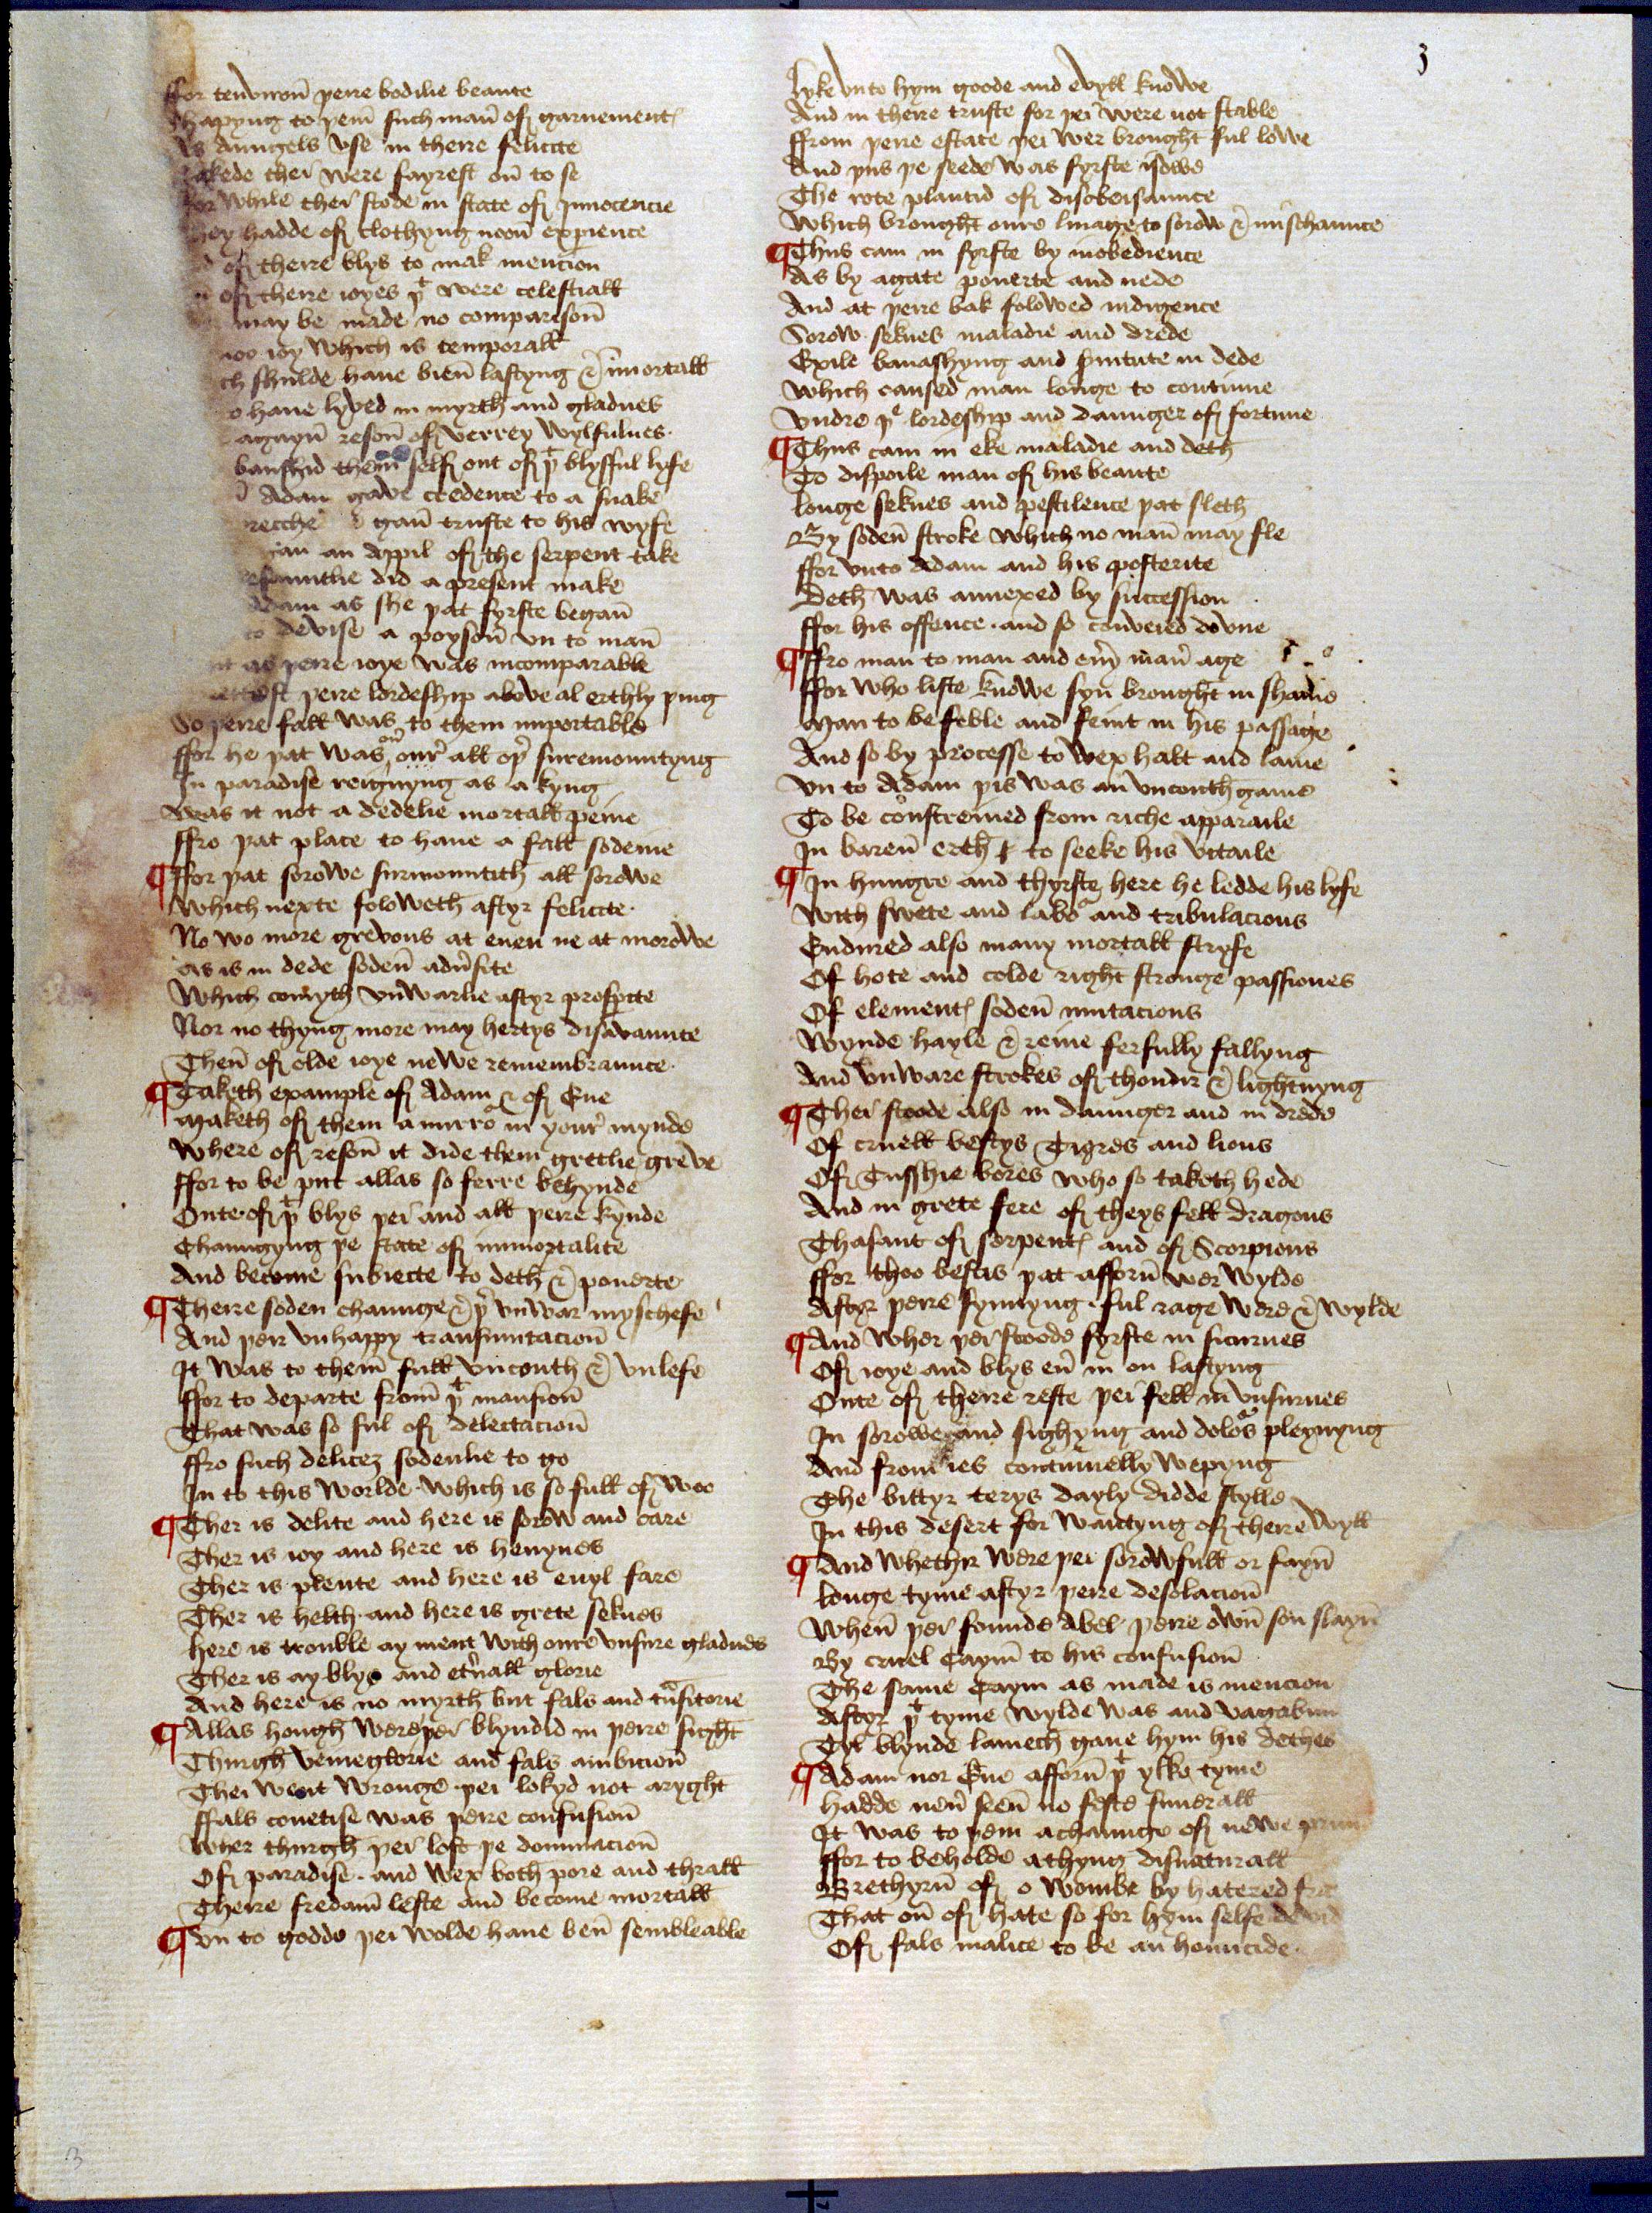 ffor tenviron̄ þeire bodilie beaute
shapyng to þem̄ such man̄ of garnement
As Aungels vse in theire felicite
nakede thei were fayrest on̄ to se
for while thei stode in state of Innocencie
they hadde of clothyng noon̄ expience
of theire blys to mak mencion
of theire ioyes þt were celestiall
may be made no comparison̄
ioy which is temporall
ch shulde haue bien̄ lastyng & īmortall
o haue lyved in myrth and gladnes
agayn̄ reson̄ of verrey wylfulnes
banshid them̄ self out of þt blysful lyfe
Adan gave credence to a snake
gan̄ truste to his wyfe
an Appil of the serpent take
did a present make
Adam as she þat fyrste began̄
to devise a poyson̄ vn to man̄
as þeire ioye was incomparable
þeire lordeship above al erthly þing
So þeire fall was to them importable
ffor he þat was our all oþr suremountyng
In paradise reignyng as a kyng
was it not a dedelie mortall peine
ffro þat place to haue a fall sodeine
¶ ffor þat sorowe surmountith all sorowe
which nexte foloweth aftyr felicite
No wo more grevous at euen ne at morowe
as is in dede soden̄ adu̓site
Which comyth vnwarlie aftyr prosꝑite
Nor no thyng more may hertys disavaunce
Then̄ of olde ioye newe remembraunce
¶ Taketh example of Adam & of Eue
Maketh of them a mirror in your mynde
where of reson̄ it dide them gretlie greve
ffor to be put allas so ferre behynde
Oute of þt blys þei and all þeire kynde
Chaungyng þe state of inmortalite
And become subiecte to deth & pouerte
¶ Theire soden chaunge & þr vnwar myschefe
And þeir vnhappy transmutacion̄
It was to them̄ full vnconth & vnlefe
ffor to departe from̄ þt mansion̄
That was so ful of delectacion̄
ffro such delicez sodenlie to go
In to this worlde which is so full of woo
¶ Ther is delite and here is sorow and care
Ther is ioy and here is heuynes
Ther is plente and here is euyl fare
Ther is helth and here is grete seknes
here is trouble ay ment with oure vnsure gladnes
Ther is ay blys and etn̄all glorie
And here is no myrth but fals and tn̄sitorie
¶ Allas hough were þei blyndid in þeire sight
Thurgh veineglorie and fals ambicion̄
Thei went wronge þei lokyd not aryght
ffals couetise was þeire confusion̄
Wher thurgh þei lost þe dominacion̄
Of paradise and wex both pore and thrall
Theire fredam̄ lefte and become mortall
¶ vn to godde þei wolde haue ben̄ sembleable
3
lyke vnto hym goode and evyll knowe
And in theire truste for þei were not stable
ffrom þeire estate þei wer brought ful lowe
And þus þe seede was fyrste isowe
The rote plantid of disobeisaunce
which brought oure linage to sorow & mischaunce
¶ Thus cam in fyrste by inobedience
As by agate pouerte and nede
And at þeire bak folowed indigence
Sorow seknes maladie and drede
Exile banashyng and seruitute in dede
which caused man longe to contune
vndre þe lordeship and daunger of fortune
¶ Thus cam in eke maladie and deth
To dispoile man of his beaute
longe seknes and pestilence þat sleth
By soden̄ stroke which no man̄ may fle
ffor vnto Adam and his posterite
Deth was annexed by succession
ffor his offence and so conveied dovne
¶ ffro man to man and eu̓y man̄ age
ffor who liste knowe syn̄ brought in shame
Man to be feble and feint in his passage
And so by processe to wex halt and lame
vn to Adam þis was an vnconth game
To be constreined from riche apparaile
In baren̄ erth to seeke his vitaile
¶ In hungre and thyrste here he ledde his lyfe
with swete and labor and tribulacions
Endured also many mortall stryfe
Of hote and colde right stronge passiones
Of element soden̄ mutacions
wynde hayle & reine ferfully fallyng
And vnware strokes of thondir & lightnyng
¶ Thei stoode also in daunger and in drede
Of cruell bestys Tigres and lions
Of Tusshie bores who so taketh hede
And in grete fere of theys fell dragons
Thasaut of serpent and of Scorpions
ffor thoo bestis þat afforn̄ wer wylde
Aftyr þeire synnyng ful rage were & wylde
¶ And wher þei stoode fyrste in sicurnes
Of ioye and blys eu̓ in on lastyng
Oute of theire reste þei fell in vnsurnes
In sorowe and sighyng and dolos pleynyng
And from ies contunuelly wepyng
The bittyr terys dayly didde stylle
In this desert for wantyng of theire wyll
¶ And whethir were þei sorowfull or fayn̄
longe tyme aftyr þeire desolacion̄
When̄ þei founde Abel þeire own̄ son slayn̄
By cruel Caym̄ to his confusion̄
The same Caym as made is mencion
Aftyr þt tyme wylde was and vagabun
Tyl blynde lamech gaue hym his dethes
¶ Adam nor Eue afforn̄ þt ylke tyme
hadde neu̓ seen̄ no feste funerall
It was to þem a chaunge of newe
ffor to beholde a thyng disnaturall
Brethyrn̄ of o wombe by hatered
That on̄ of hate so for hym selfe
Of fals malice to be an homicide